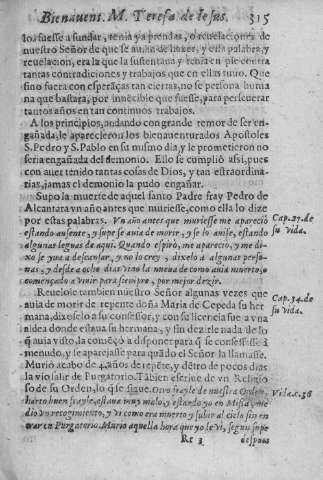 Bienauent. M. Teresa de Iesus. 315
los fuesse a fundar, tenia ya prendas, o reuelaciones de
nuestro Señor de que se auian de hazer, y esta palabra, y
reuelacion, era la que la sustentaua y tenia en pie contra
tantas contradiciones y trabajos que en ellas tuuo. Que
sino fuera con esperãças tan ciertas, no se persona huma
na que bastara, por inuecible que fuesse, para perseuerar
tantos años en tan continuos trabajos.
A los principios, andando con grande temor de ser en-
gañada, le aparecieron los bienauenturados Apostoles
S. Pedro y S. Pablo en su mismo dia, y le prometieron no
seria engañada del demonio. Ello se cumplió assi, pues
con auer tenido tantas cosas de Dios, y tan estraordina-
rias, jamas el demonio la pudo engañar.
Supo la muerte de aquel santo Padre fray Pedro de
Alcantara vn año antes que muriesse, como ella lo dize
por estas palabras. Vn año antes que muriesse me apareciò
estando ausente, y supe se auia de morir, y se lo auise, estando
algunas leguas de aqui. Quando espirò, me apareciò, y me di-
xo se yua a descansar, y no lo crey, dixelo a algunas perso-
nas, y desde a ocho dias vino la nueua de como auia muerto, o
començado a viuir para siempre, por mejor dezir.
Cap. 27. de
su vida.
Reuelole tambien nuestro Señor algunas vezes que
auia de morir de repente doña Maria de Cepeda su her
mana, dixeselo a su confessor, y con su licencia fue a vna
aldea donde estaua su hermana, y sin dezirle nada de lo
q̃ auia visto, la começò a disponer para q̃ se confessasse a
menudo, y se aparejasse para quãdo el Señor la llamasse.
Cap. 34. de
su vida.
Murió acabo de 4. años de repẽte, y dẽtro de pocos dias
la vio salir de Purgatorio. Tãbien escriue de vn Religio
so de su Orden, lo q̃ se sigue. Otro frayle de nuestra Orden,
harto buen frayle, estaua muy malo, y estando yo en Missa, me
dio vn recogimiento, y vi como era muerto y subir al cielo sin en
trar en Purgatorio. Murio aquella hora que yo le vi, segun supe
Vida. c. 38
Rr 3 despues